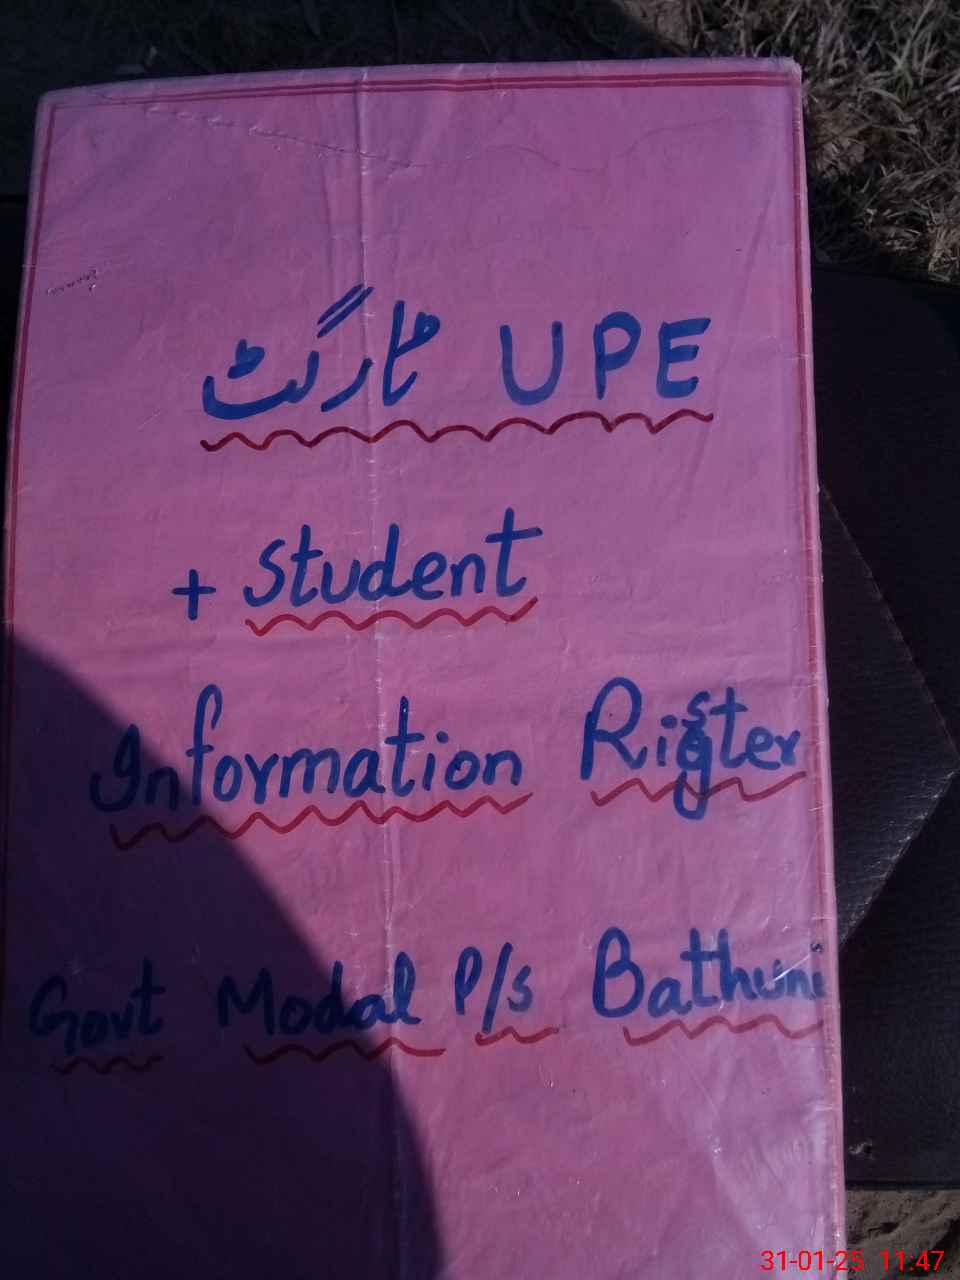 UPE ٹارگٹ
+ Student
Information Rigster
Govt Modal P/S Bathuni
31-01-25 11:47